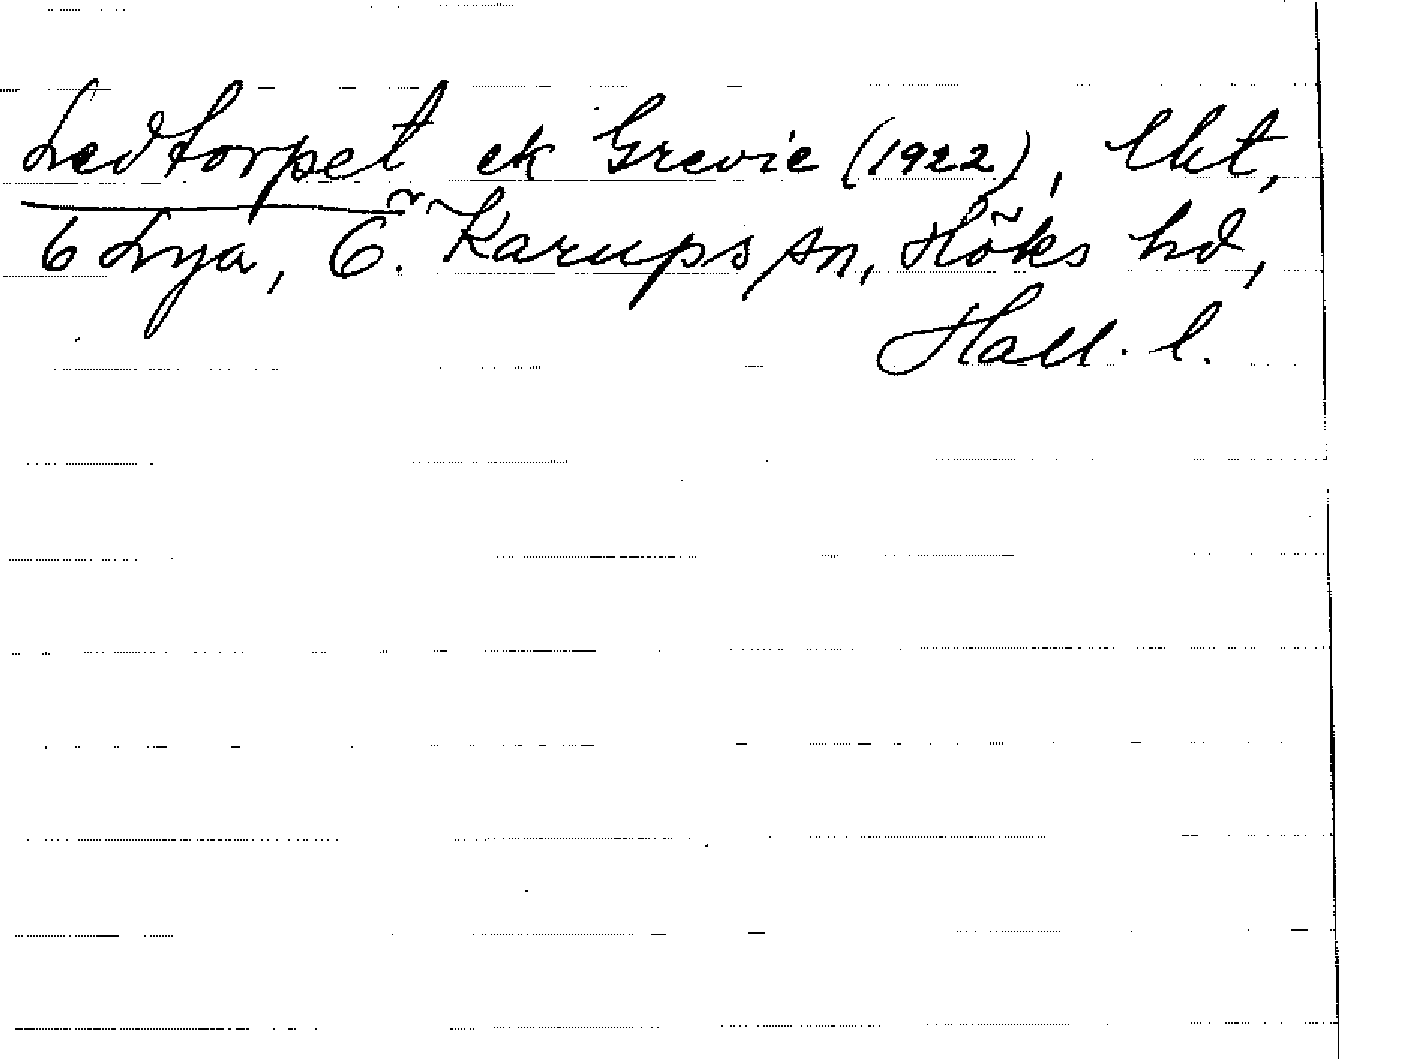 Ledtorpet ek Grevie (1922), lht,
6 Lya, Ö. Karups sn, Höks hd,
Hall. l.